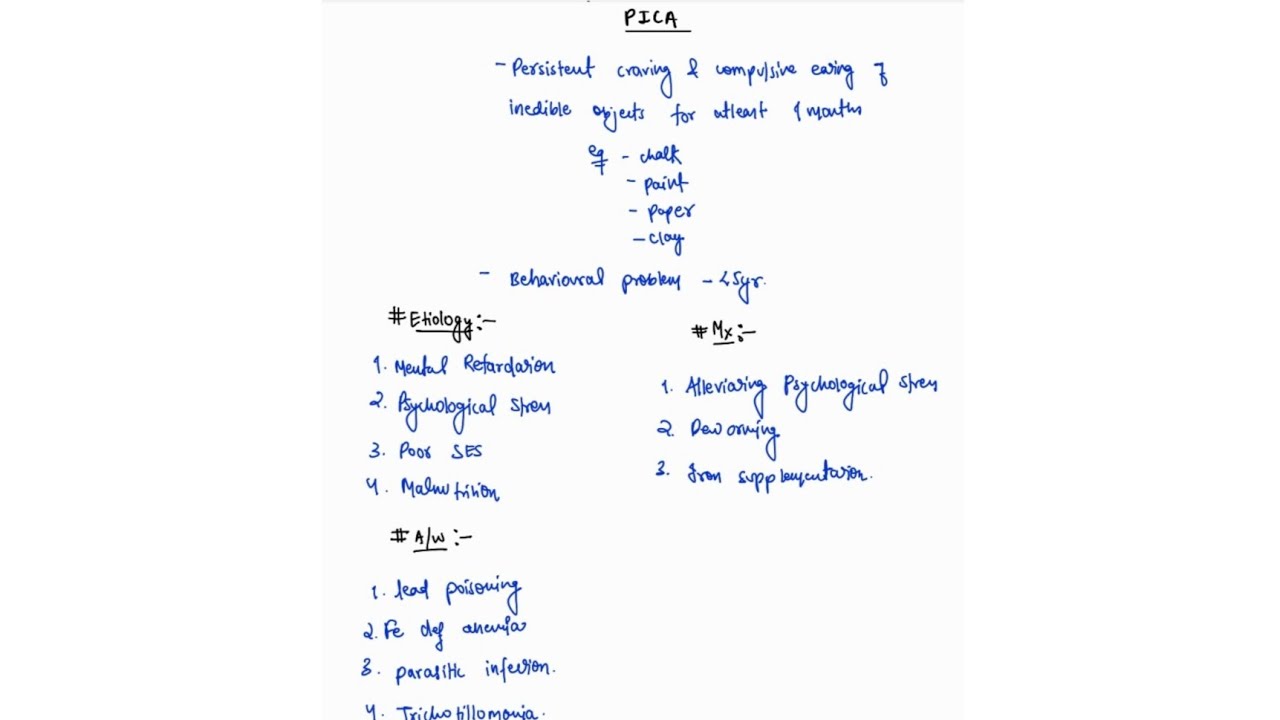 PICA
- Persistent craving & compulsive earing of
inedible objects for atleast 1 months
eg - chalk
- paint
- paper
- clay
- Behavioural problem - <5yr.
# Etiology :-
1. Mental Retardarion
2. Psychological stress
3. Poor SES
4. Malnutrition
# A/w :-
1. lead poisoning
2. Fe def anemia
3. parasitic infection.
4. Trichotillomania.
# Mx :-
1. Alleviaring Psychological stress
2. Deworming
3. Iron supplementarion.